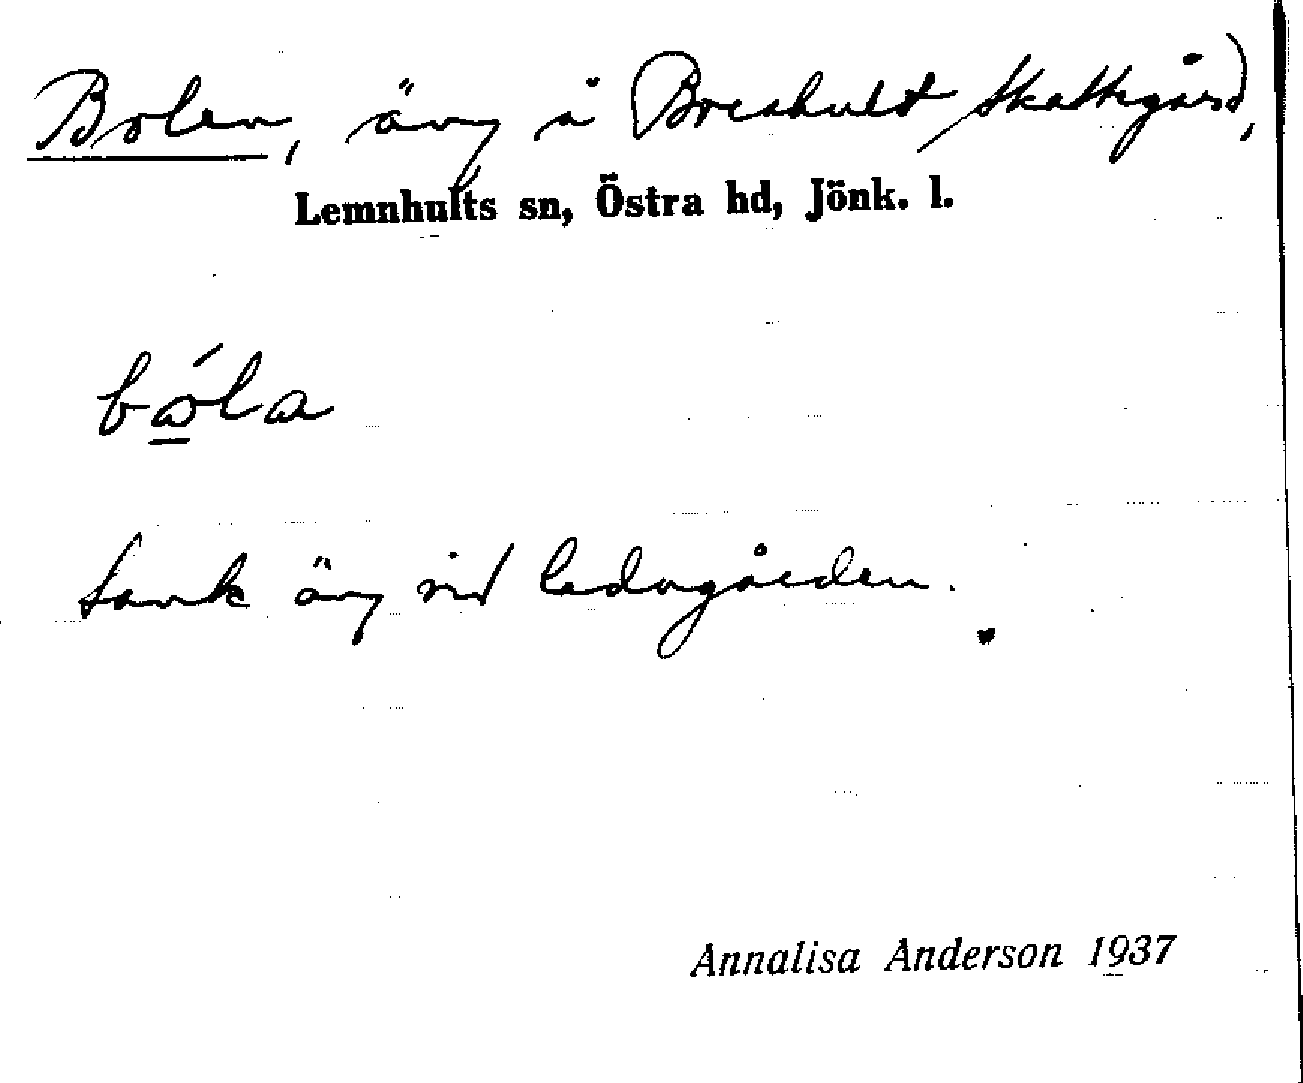 Bolen, äng å Breahult Skattegård,
Lemnhults sn, Östra hd, Jönk. l.
bóla
Sank äng vid ladugården.
Annalisa Anderson 1937